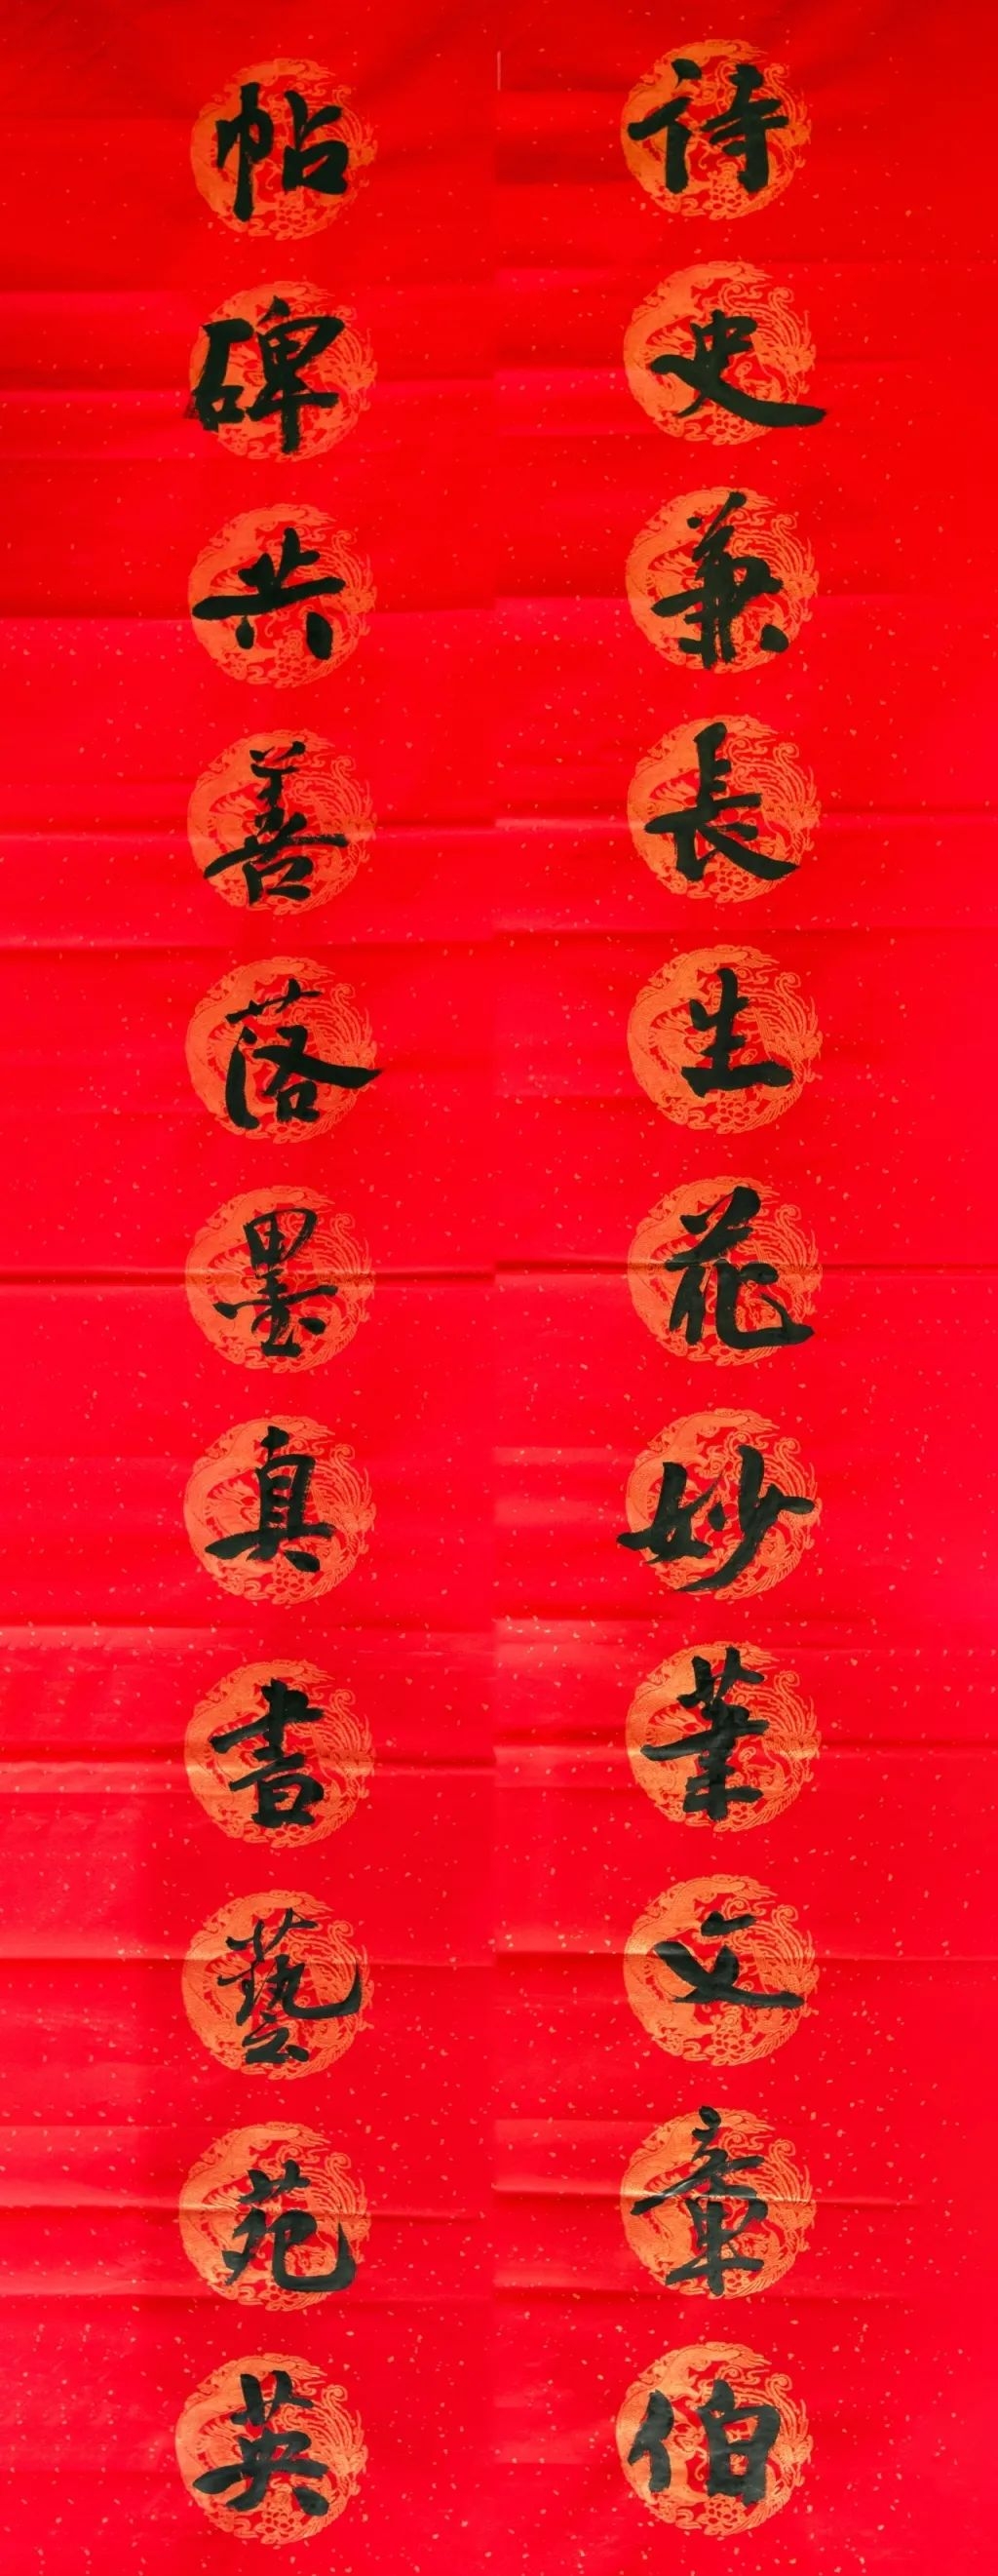 詩史兼長生花妙筆文章伯
帖碑共善落墨真書藝苑英